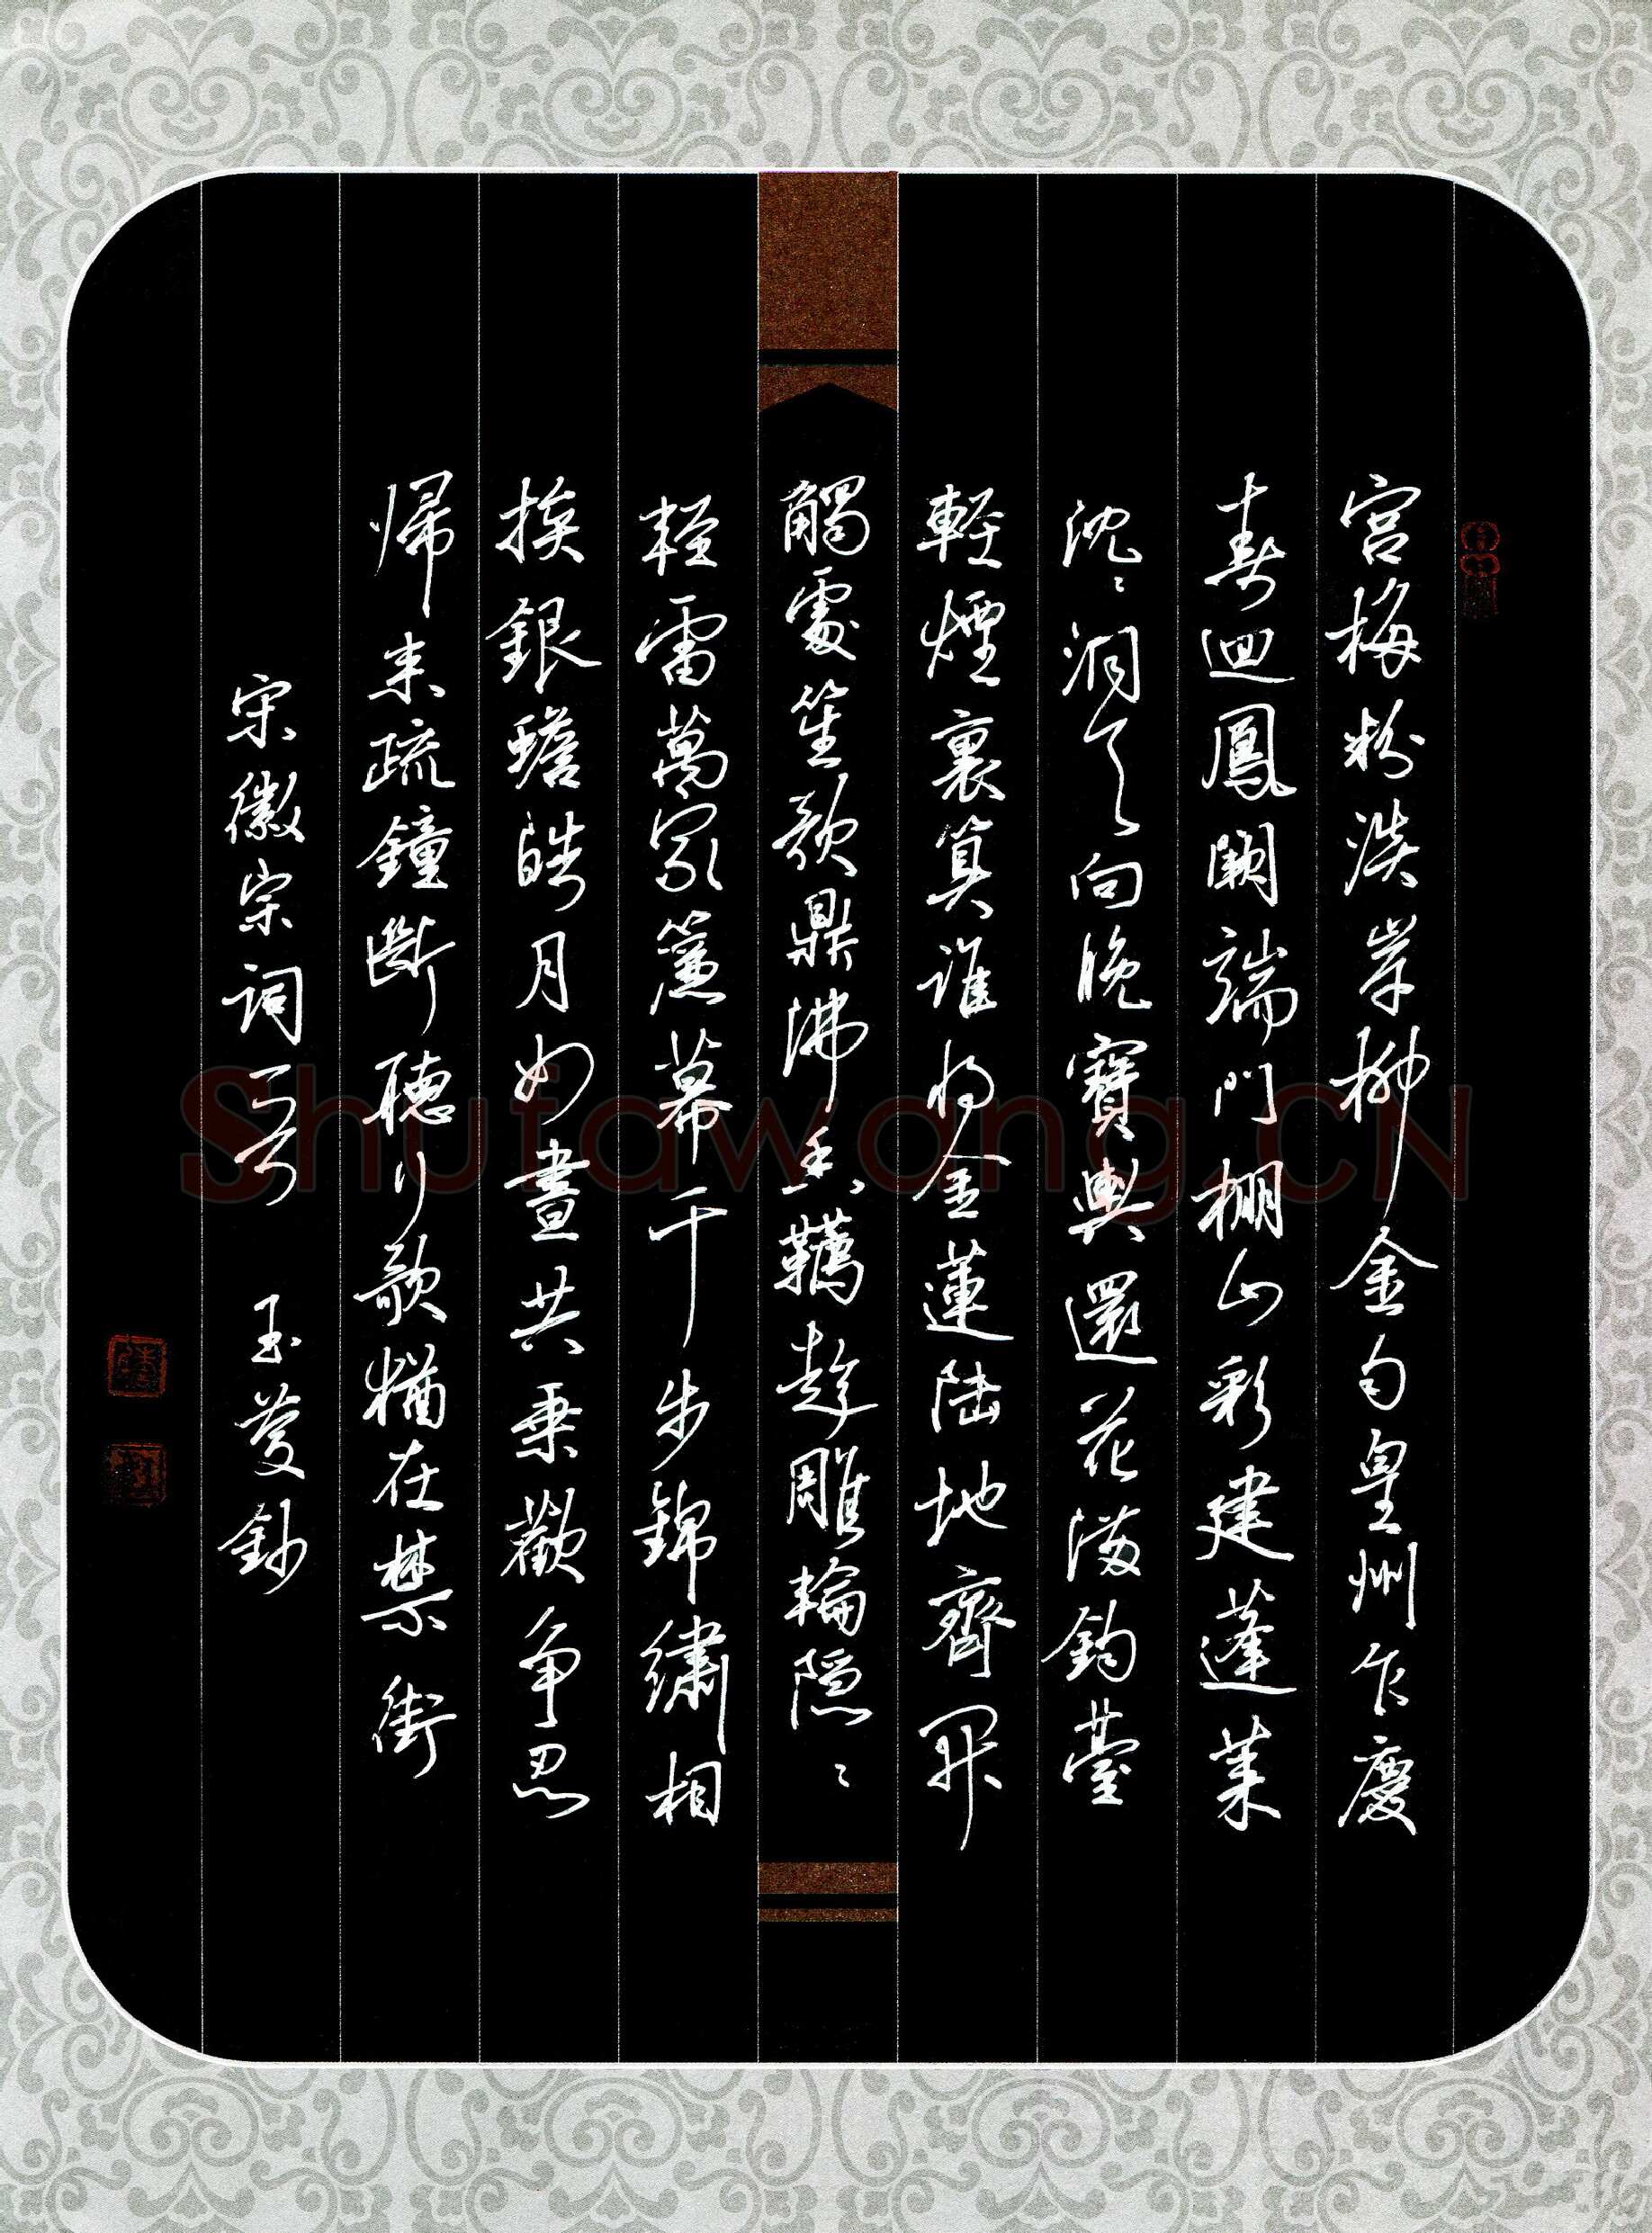 宮梅粉淡岸柳金勻皇州乍慶
春迴鳳闕端門棚山彩建蓬萊
沈〻洞天向晚寶輿還花滿鈞臺
輕煙裏算誰將金蓮陸地齊開
觸處笙歌鼎沸香韉趁雕輪隱〻
輕雷萬家簾幕千步錦繡相
挨銀蟾皓月如晝共乘歡爭忍
歸來疏鐘斷聽行歌猶在禁街
宋徽宗詞 玉 鈔
Shufawang.CN